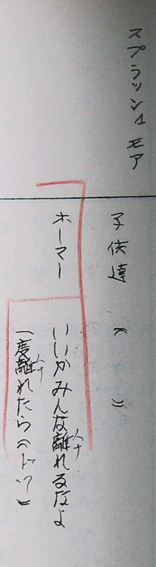 スプラッシュ モア
子供達 （ ）
ホーマー いいかみんな離れるなよ
一度離れたら（ハナ